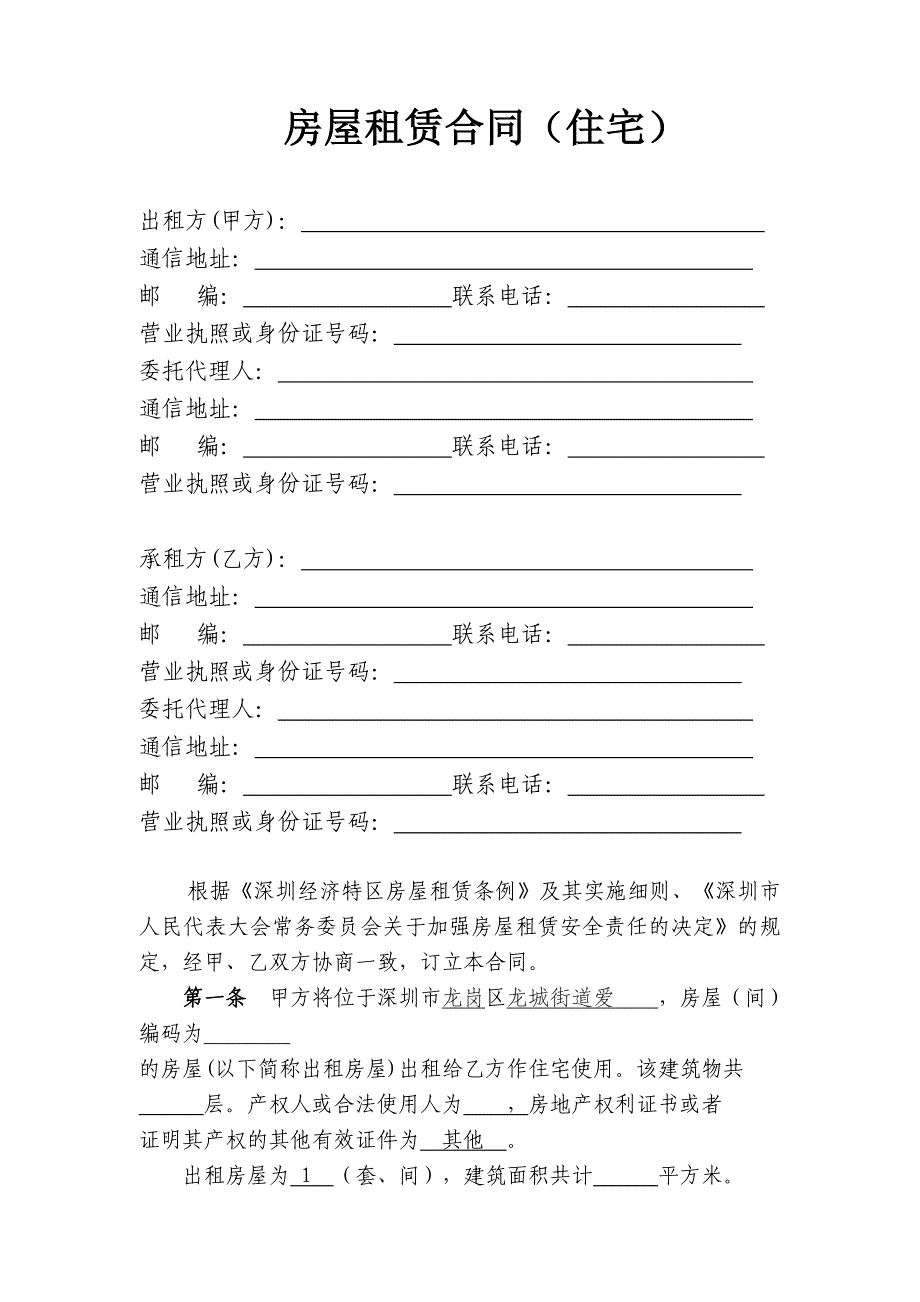 房屋租赁合同（住宅）
出租方(甲方)：
通信地址：
邮 编： 联系电话：
营业执照或身份证号码：
委托代理人：
通信地址：
邮 编： 联系电话：
营业执照或身份证号码：
承租方(乙方)：
通信地址：
邮 编： 联系电话：
营业执照或身份证号码：
委托代理人：
通信地址：
邮 编： 联系电话：
营业执照或身份证号码：
根据《深圳经济特区房屋租赁条例》及其实施细则、《深圳市
人民代表大会常务委员会关于加强房屋租赁安全责任的决定》的规
定，经甲、乙双方协商一致，订立本合同。
第一条 甲方将位于深圳市龙岗区龙城街道爱____，房屋（间）
编码为________
的房屋(以下简称出租房屋)出租给乙方作住宅使用。该建筑物共
______层。产权人或合法使用人为____，房地产权利证书或者
证明其产权的其他有效证件为__其他__。
出租房屋为_1__（套、间），建筑面积共计______平方米。